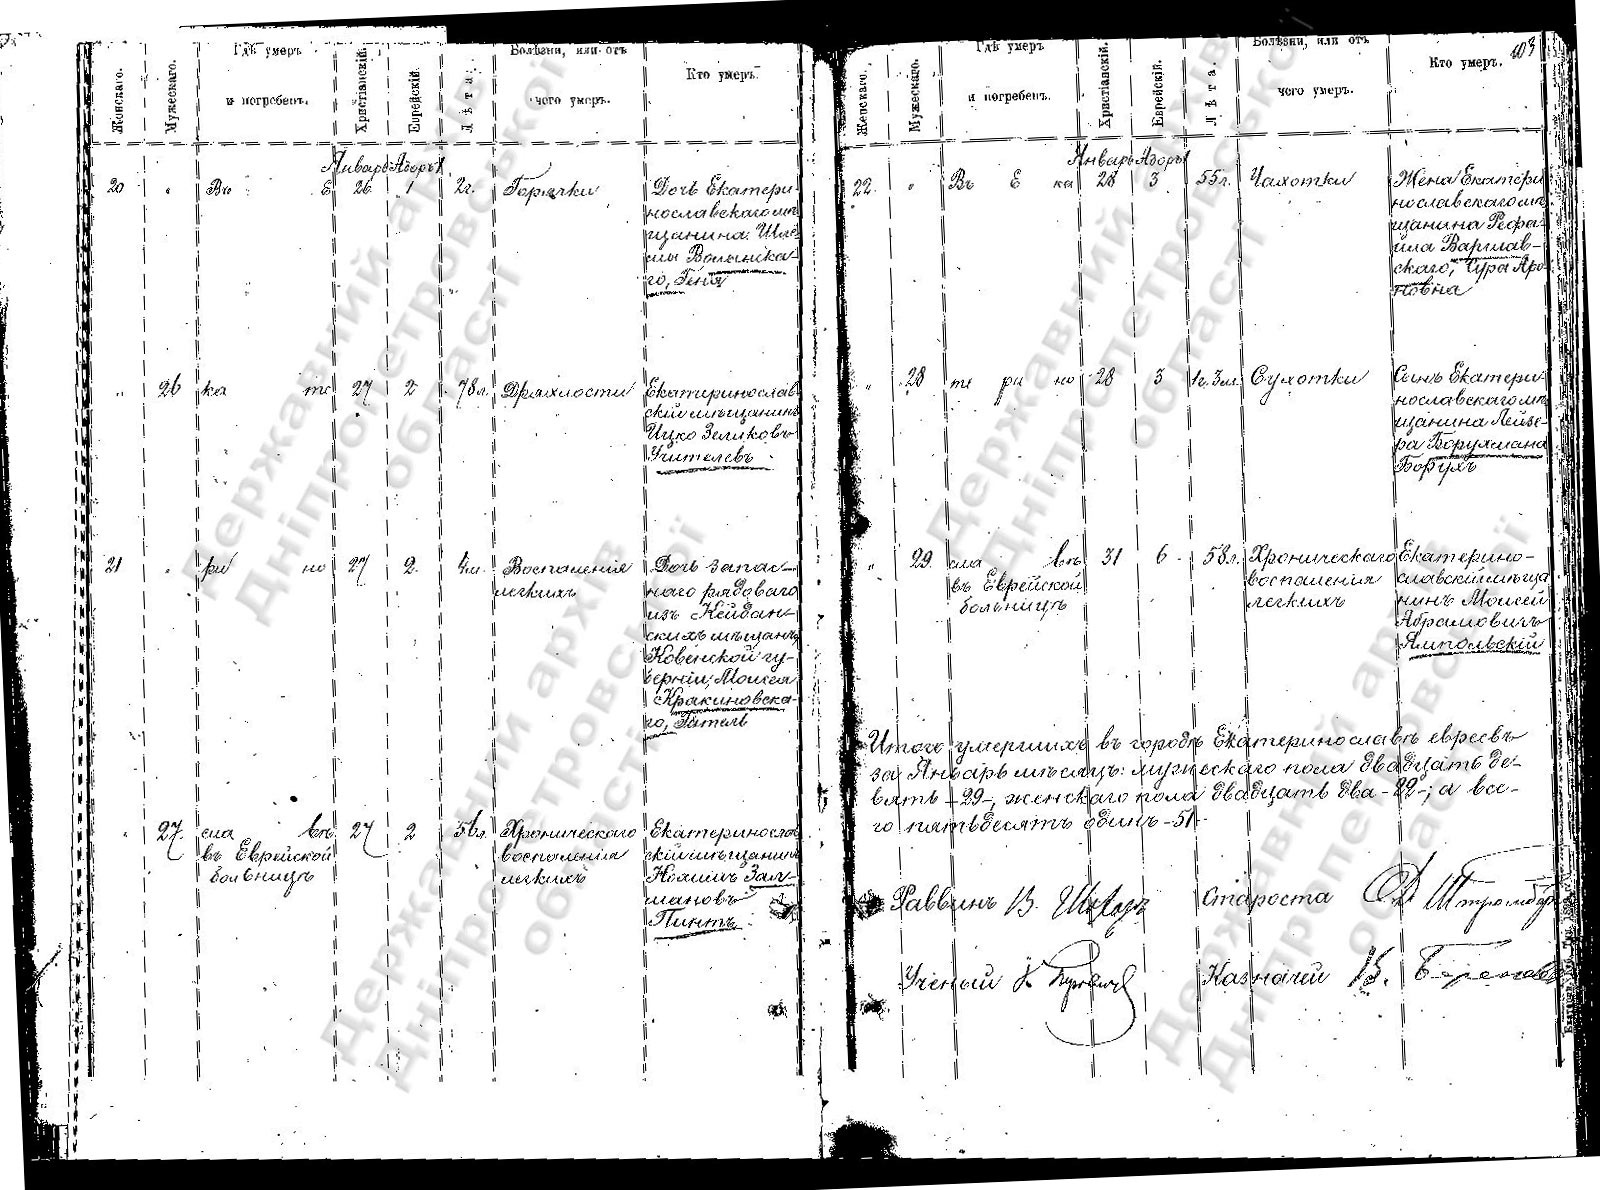 103
Женскаго.
Мужескаго.
Гдѣ умеръ
и погребенъ.
Христіанскій.
Еврейскій.
Лѣта.
Болѣзни, или отъ
чего умеръ.
Кто умеръ.
Январь Адоръ 1
20 " Въ Е 26 1 2г. Горячки
Дочь Екатери-
нославскаго мѣ-
щанина Шле-
мы Волынска-
го, Геня
" 26 ка те 27 2 78л. Дряхлости
Екатеринослав-
скій мѣщанинъ
Ицко Зеликовъ
Учителевъ
21 " ри но 27 2 4м. Воспаленія
легкихъ
Дочь запас-
наго рядоваго
изъ Кейдан-
скихъ мѣщанъ,
Ковенской гу-
берніи, Моисея
Кракиновска-
го, Гитель
" 27 сла вѣ 27 2 56л. Хроническаго
въ Еврейской воспаленія
больницѣ легкихъ
Екатеринослав-
скій мѣщанинъ
Нохимъ Зал-
мановъ
Пинтъ
Женскаго.
Мужескаго.
Гдѣ умеръ
и погребенъ.
Христіанскій.
Еврейскій.
Лѣта.
Болѣзни, или отъ
чего умеръ.
Кто умеръ.
Январь Адоръ 1
22. " Въ Е ка 28 3 55г. Чахотки
Жена Екатери-
нославскаго мѣ-
щанина Рефа-
ила Варшав-
скаго, Сура Аро-
новна
" 28 те ри но 28 3 1г. 3м. Сухотки
Сынъ Екатери-
нославскаго мѣ-
щанина Лейзе-
ра Борухмана
Борухъ
" 29 сла вѣ 31 6 58л. Хроническаго
въ Еврейской воспаленія
больницѣ легкихъ
Екатерино-
славскій мѣща-
нинъ Моисей
Абрамовичъ
Ямпольскій
Итого умершихъ въ городѣ Екатеринославѣ евреевъ
за Январь мѣсяцъ: мужескаго пола двадцать де-
вять -29-, женскаго пола двадцать два -22-; а все-
го пятьдесятъ одинъ -51-
Раввинъ В. Староста
Ученый Казначей В.
Державний архів
Дніпропетровської
області